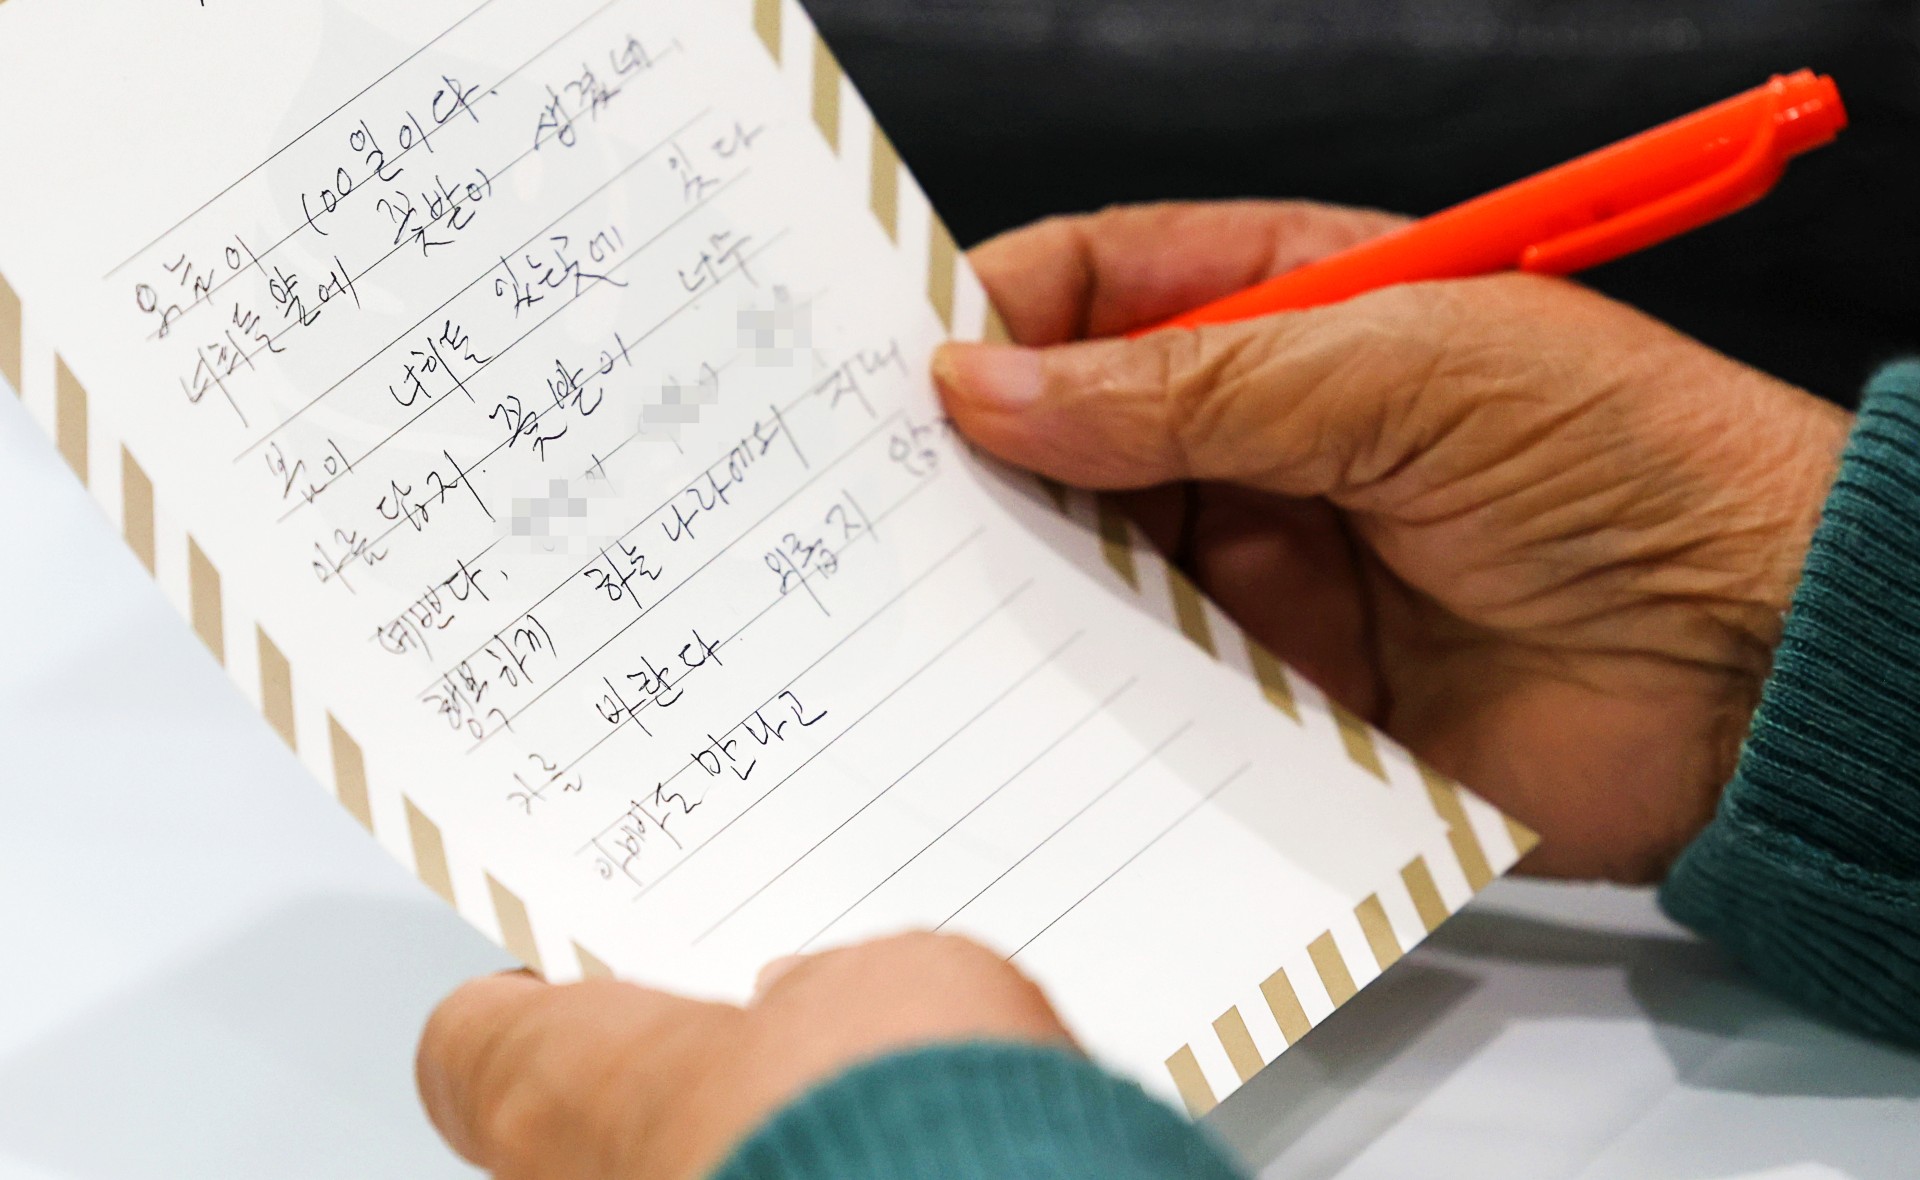 오늘이 100일이다.
너희들 앞에 꽃밭이 생겼네
봄이 너희들 있는곳에 있다
아름답지. 꽃밭이 너무
예쁘다.
행복하게 하늘나라에서 지내
기를 바란다 외롭지
엄마도 만나고